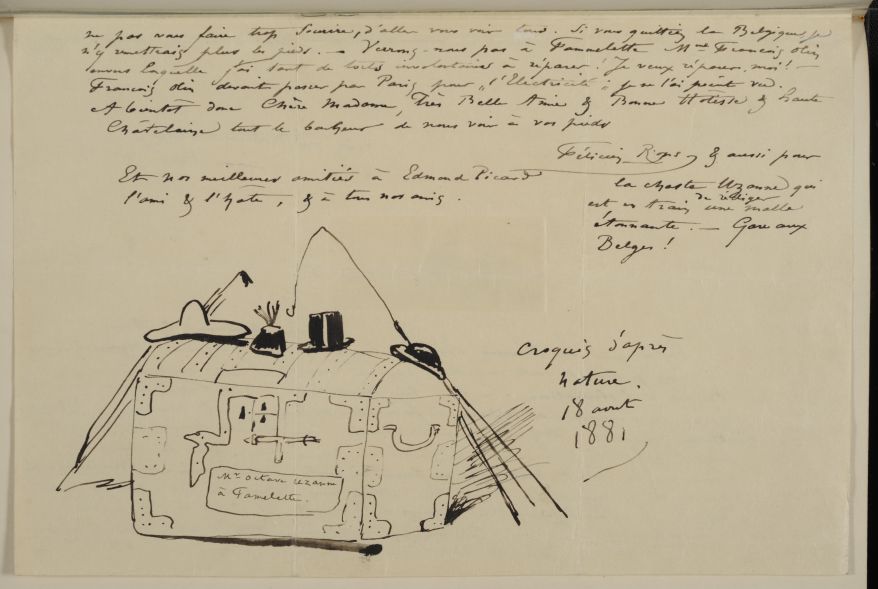 ne pas vous faire trop sourire, d'aller vous voir tous. Si vous quittiez la Belgique je
n'y remettrais plus les pieds. — Verrons-nous pas à Fammelette Mme François
envers laquelle j'ai tant de torts involontaires à réparer! Je veux réparer, moi!
François devait passer par Paris pour „l'Electricité„ je ne l'ai point vu.
A bientôt donc Chère Madame, Très Belle Amie & Bonne Hôtesse & haute
Châtelaine tout le bonheur de nous voir à vos pieds
Félicien Rops & aussi pour
la chaste Uzanne qui
est en train de rédiger une malle
étonnante. — Gare aux
Belges!
Et nos meilleures amitiés à Edmond Picard
l'ami & l'hôte, & à tous nos amis.
Croquis d'après
nature.
18 aout
1881
Mr Octave Uzanne
à Famelette.